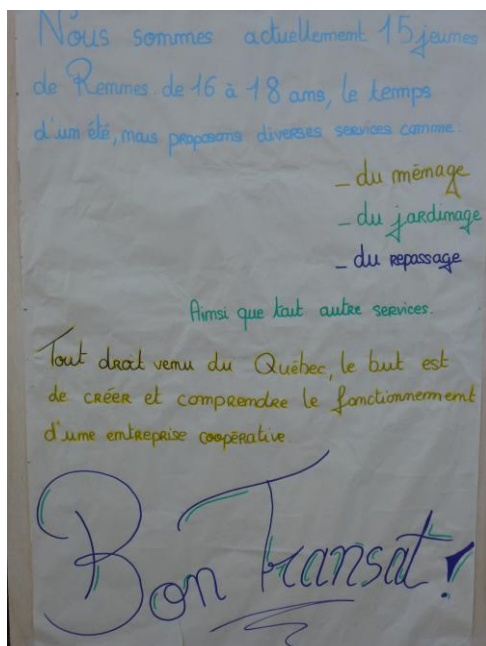 Nous sommes actuellement 15 jeunes
de Rennes de 16 à 18 ans, le temps
d'un été, nous proposons diverses services comme:
_ du ménage
_ du jardinage
_ du repassage
Ainsi que tout autre services.
Tout droit venu du Québec, le but est
de créer et comprendre le fonctionnement
d'une entreprise coopérative.
Bon Transat !